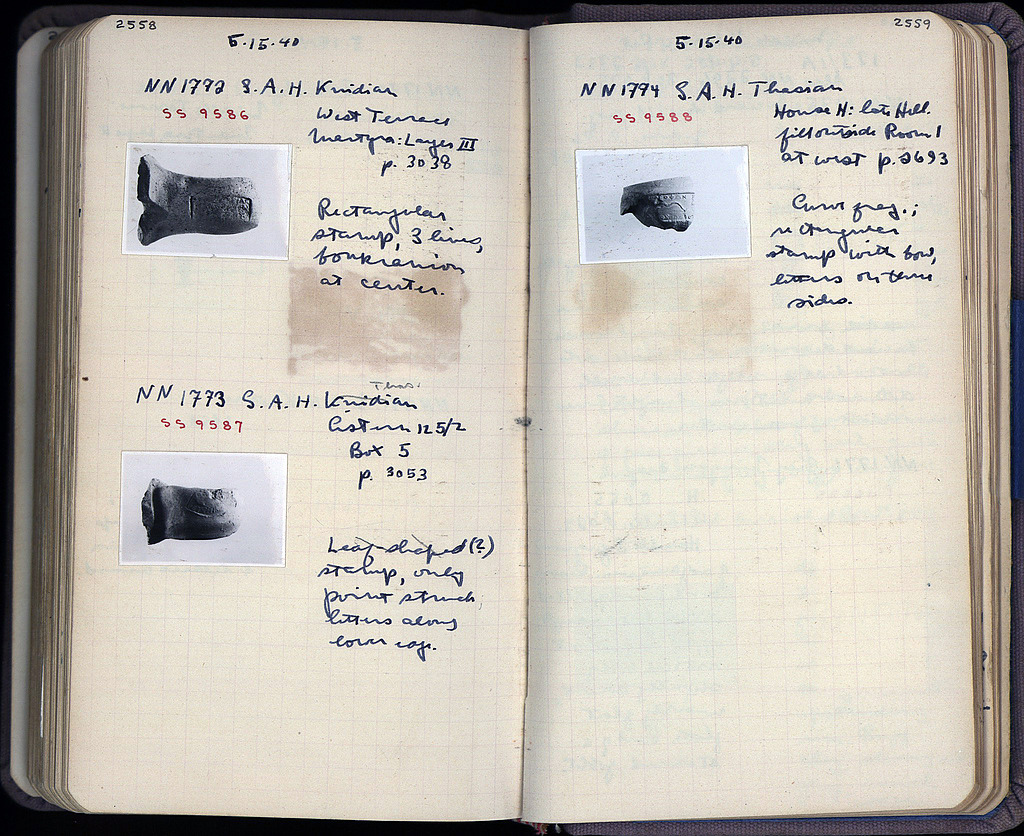 2558
5-15-40
NN 1772 S.A.H. Knidian
SS 9586
West Terrace
Martyra: Layer III
p. 3038
Rectangular
stamp, 3 lines,
boukranion
at center.
Thas.
NN 1773 S.A.H. Knidian
SS 9587
Cistern 12 5/2
Box 5
p. 3053
Leaf-shaped (?)
stamp, only
point struck,
letters along
lower edge.
2559
5-15-40
NN 1774 S.A.H. Thasian
SS 9588
House H: late Hell.
fill outside Room 1
at west p. 2693
Curved frag.;
rectangular
stamp with bow,
letters on three
sides.